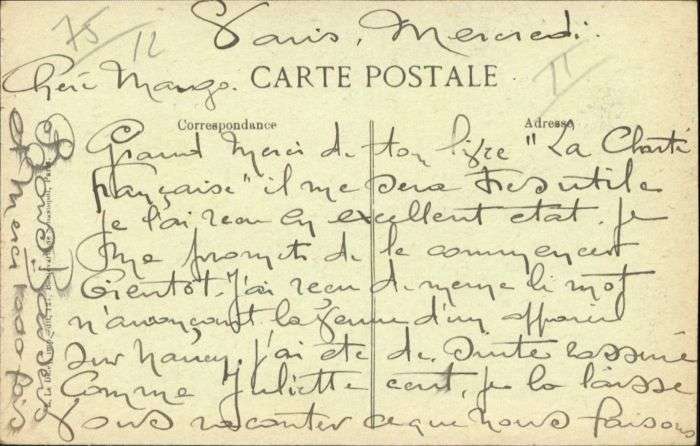 75
12
11
Paris, Mercredi.
Chère Mango.
CARTE POSTALE
Correspondance
Adresse
Grand Merci de ton livre "La Charte
française" il me sera très utile
je l'ai reçu en excellent état. Je
me promets de le commencer
bientôt. J'ai reçu de même le mot
m'annonçant la venue d'un
sur Nancy. J'ai été de suite rassuré
Comme Juliette écrit, je la laisse
vous raconter ce que nous faisons
Bons Baisers
et Merci 1000 fois